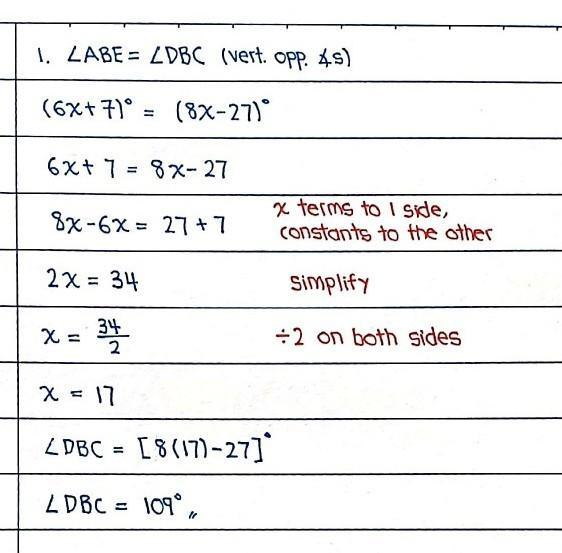 1. ∠ABE = ∠DBC (vert. opp. ∡s)
(6x+7)° = (8x-27)°
6x+7 = 8x-27
8x-6x = 27+7
x terms to 1 side,
constants to the other
2x = 34
simplify
x = 34/2
÷2 on both sides
x = 17
∠DBC = [8(17)-27]°
∠DBC = 109°〃